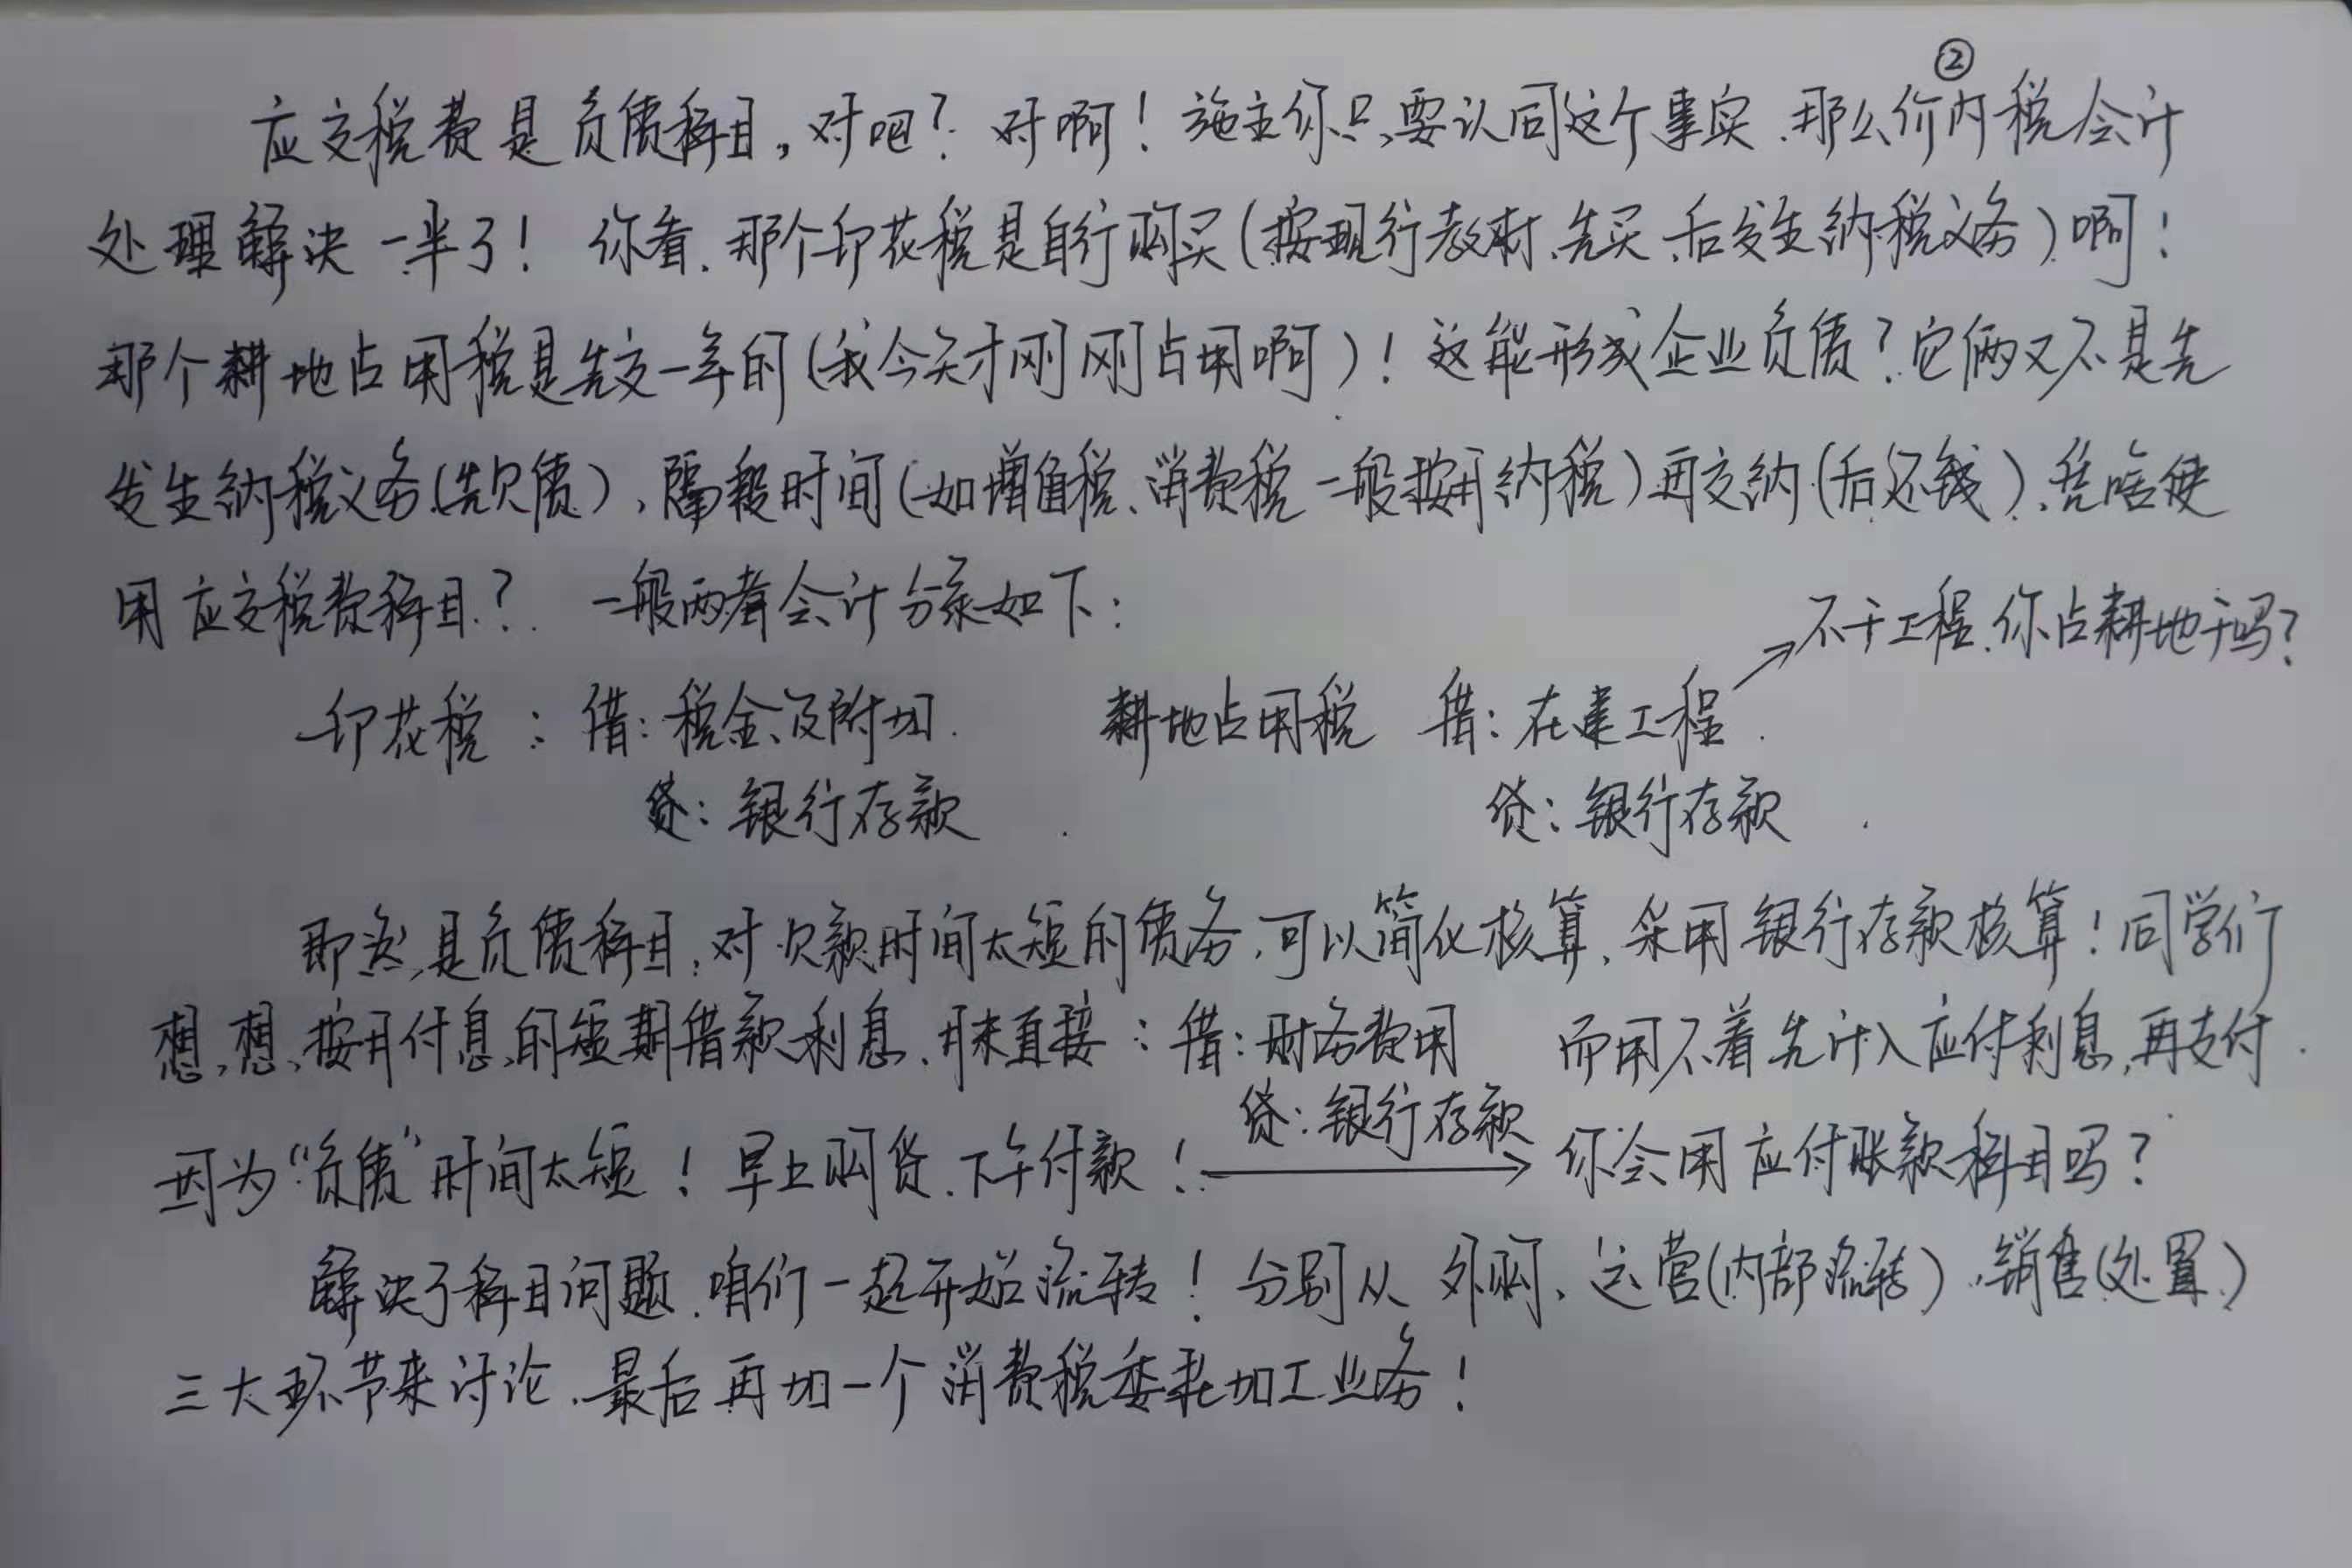 ②
应交税费是负债科目,对吧?对啊!施主你只要认同这个事实、那么价内税会计
处理解决一半了!你看、那个印花税是自行购买(按现行教材、先买、后发生纳税义务)啊!
那个耕地占用税是先交一年的(我今天才刚刚占用啊)!这能形成企业负债?它俩又不是先
发生纳税义务(先欠债)、隔段时间(如增值税、消费税一般按月纳税)再交纳(后还钱)、凭啥使
用应交税费科目?一般两者会计分录如下:
→不干工程、你占耕地干吗?
印花税:借:税金及附加 耕地占用税 借:在建工程
贷:银行存款 贷:银行存款
即然是负债科目,对欠款时间太短的债务、可以简化核算、采用银行存款核算!同学们
想想、按月付息的短期借款利息、月末直接:借:财务费用 而用不着先计入应付利息,再支付.
贷:银行存款
因为“负债”时间太短!早上购货、下午付款!→你会用应付账款科目吗?
解决了科目问题、咱们一起开始流转!分别从外购、运营(内部流转)、销售(处置)
三大环节来讨论、最后再加一个消费税委托加工业务!